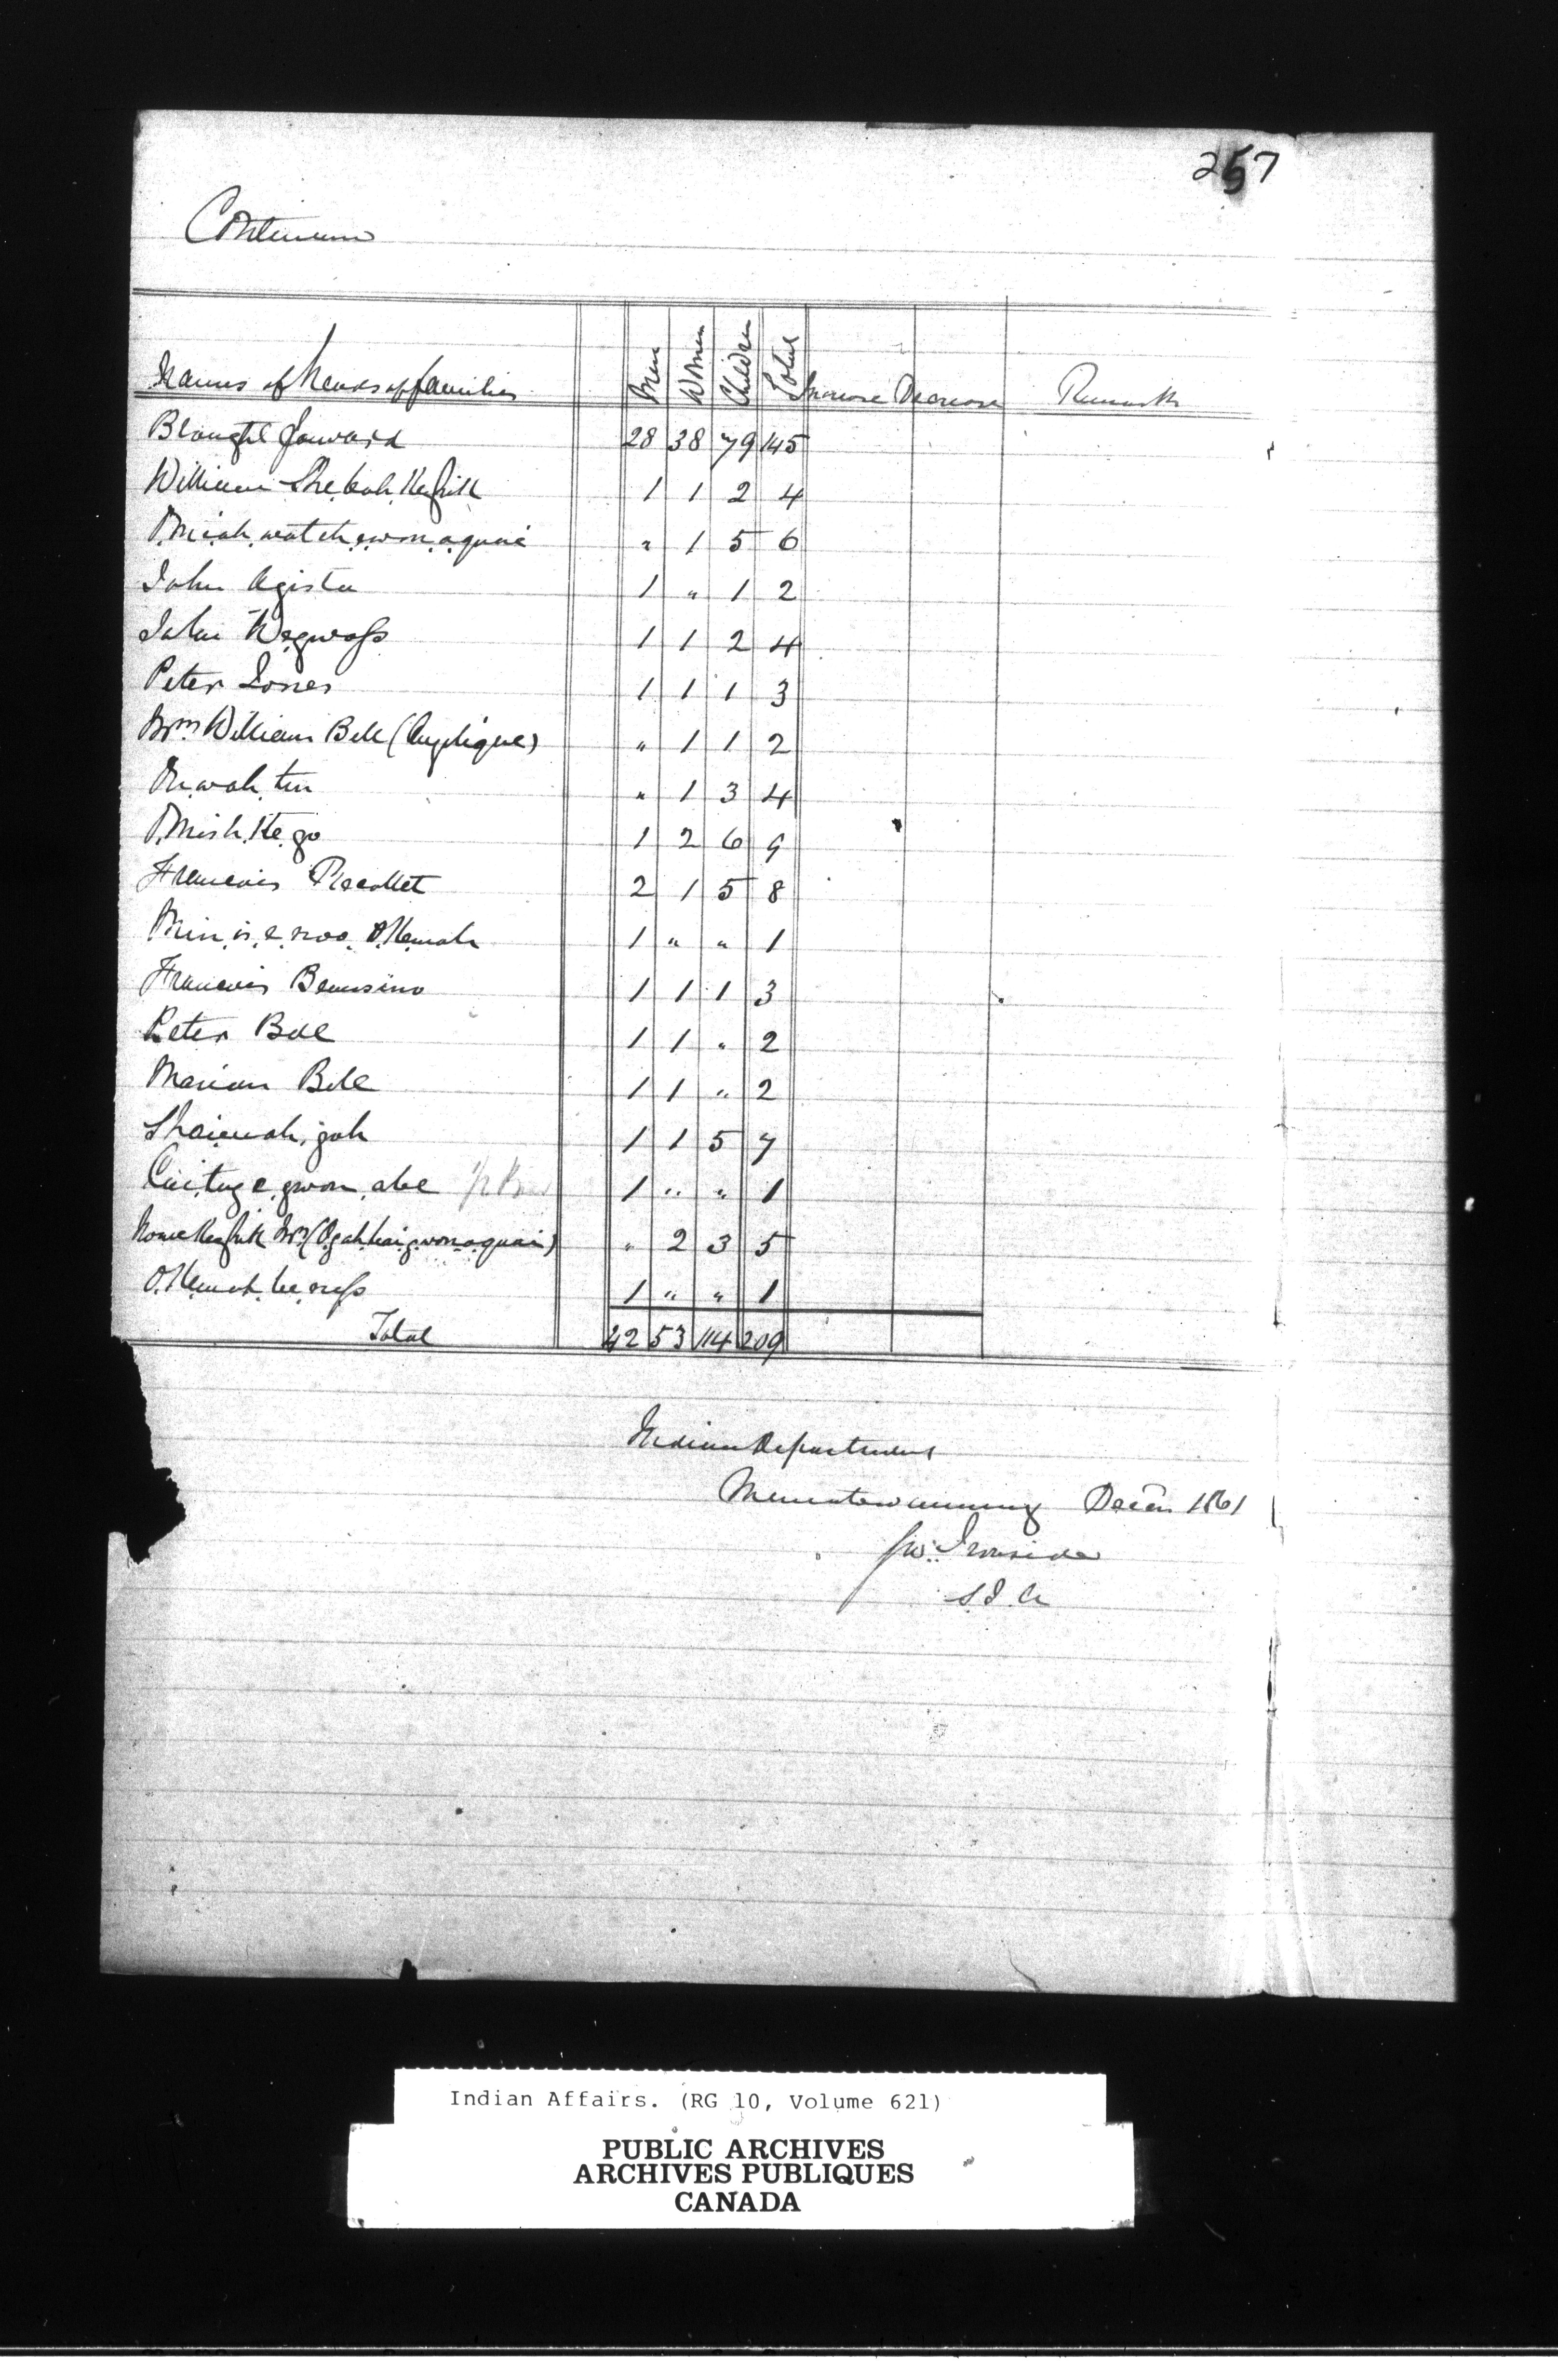 257
Continuum
Names of heads of families Men Women Children Total Increase Decrease Remarks
Brought forward 28 38 79 145
William She.bah.Keshik 1 1 2 4
" 1 5 6
John Agista 1 " 1 2
John Wagwass 1 1 2 4
Peter Jones 1 1 1 3
Mrs William Bell (Angelique) " 1 1 2
" 1 3 4
O.Mish.Ke.go 1 2 6 9
Francois Recollet 2 1 5 8
Min.is.e.noo.O.Kemah 1 " " 1
Francois Bemisino 1 1 1 3
Peter Bell 1 1 " 2
Bell 1 1 " 2
1 1 5 7
1 " " 1
" 2 3 5
1 " " 1
Total 42 53 114 209
Indian Department
Manitowaning Decem 1861
Ironside
S I A
Indian Affairs. (RG 10, Volume 621)
PUBLIC ARCHIVES
ARCHIVES PUBLIQUES
CANADA